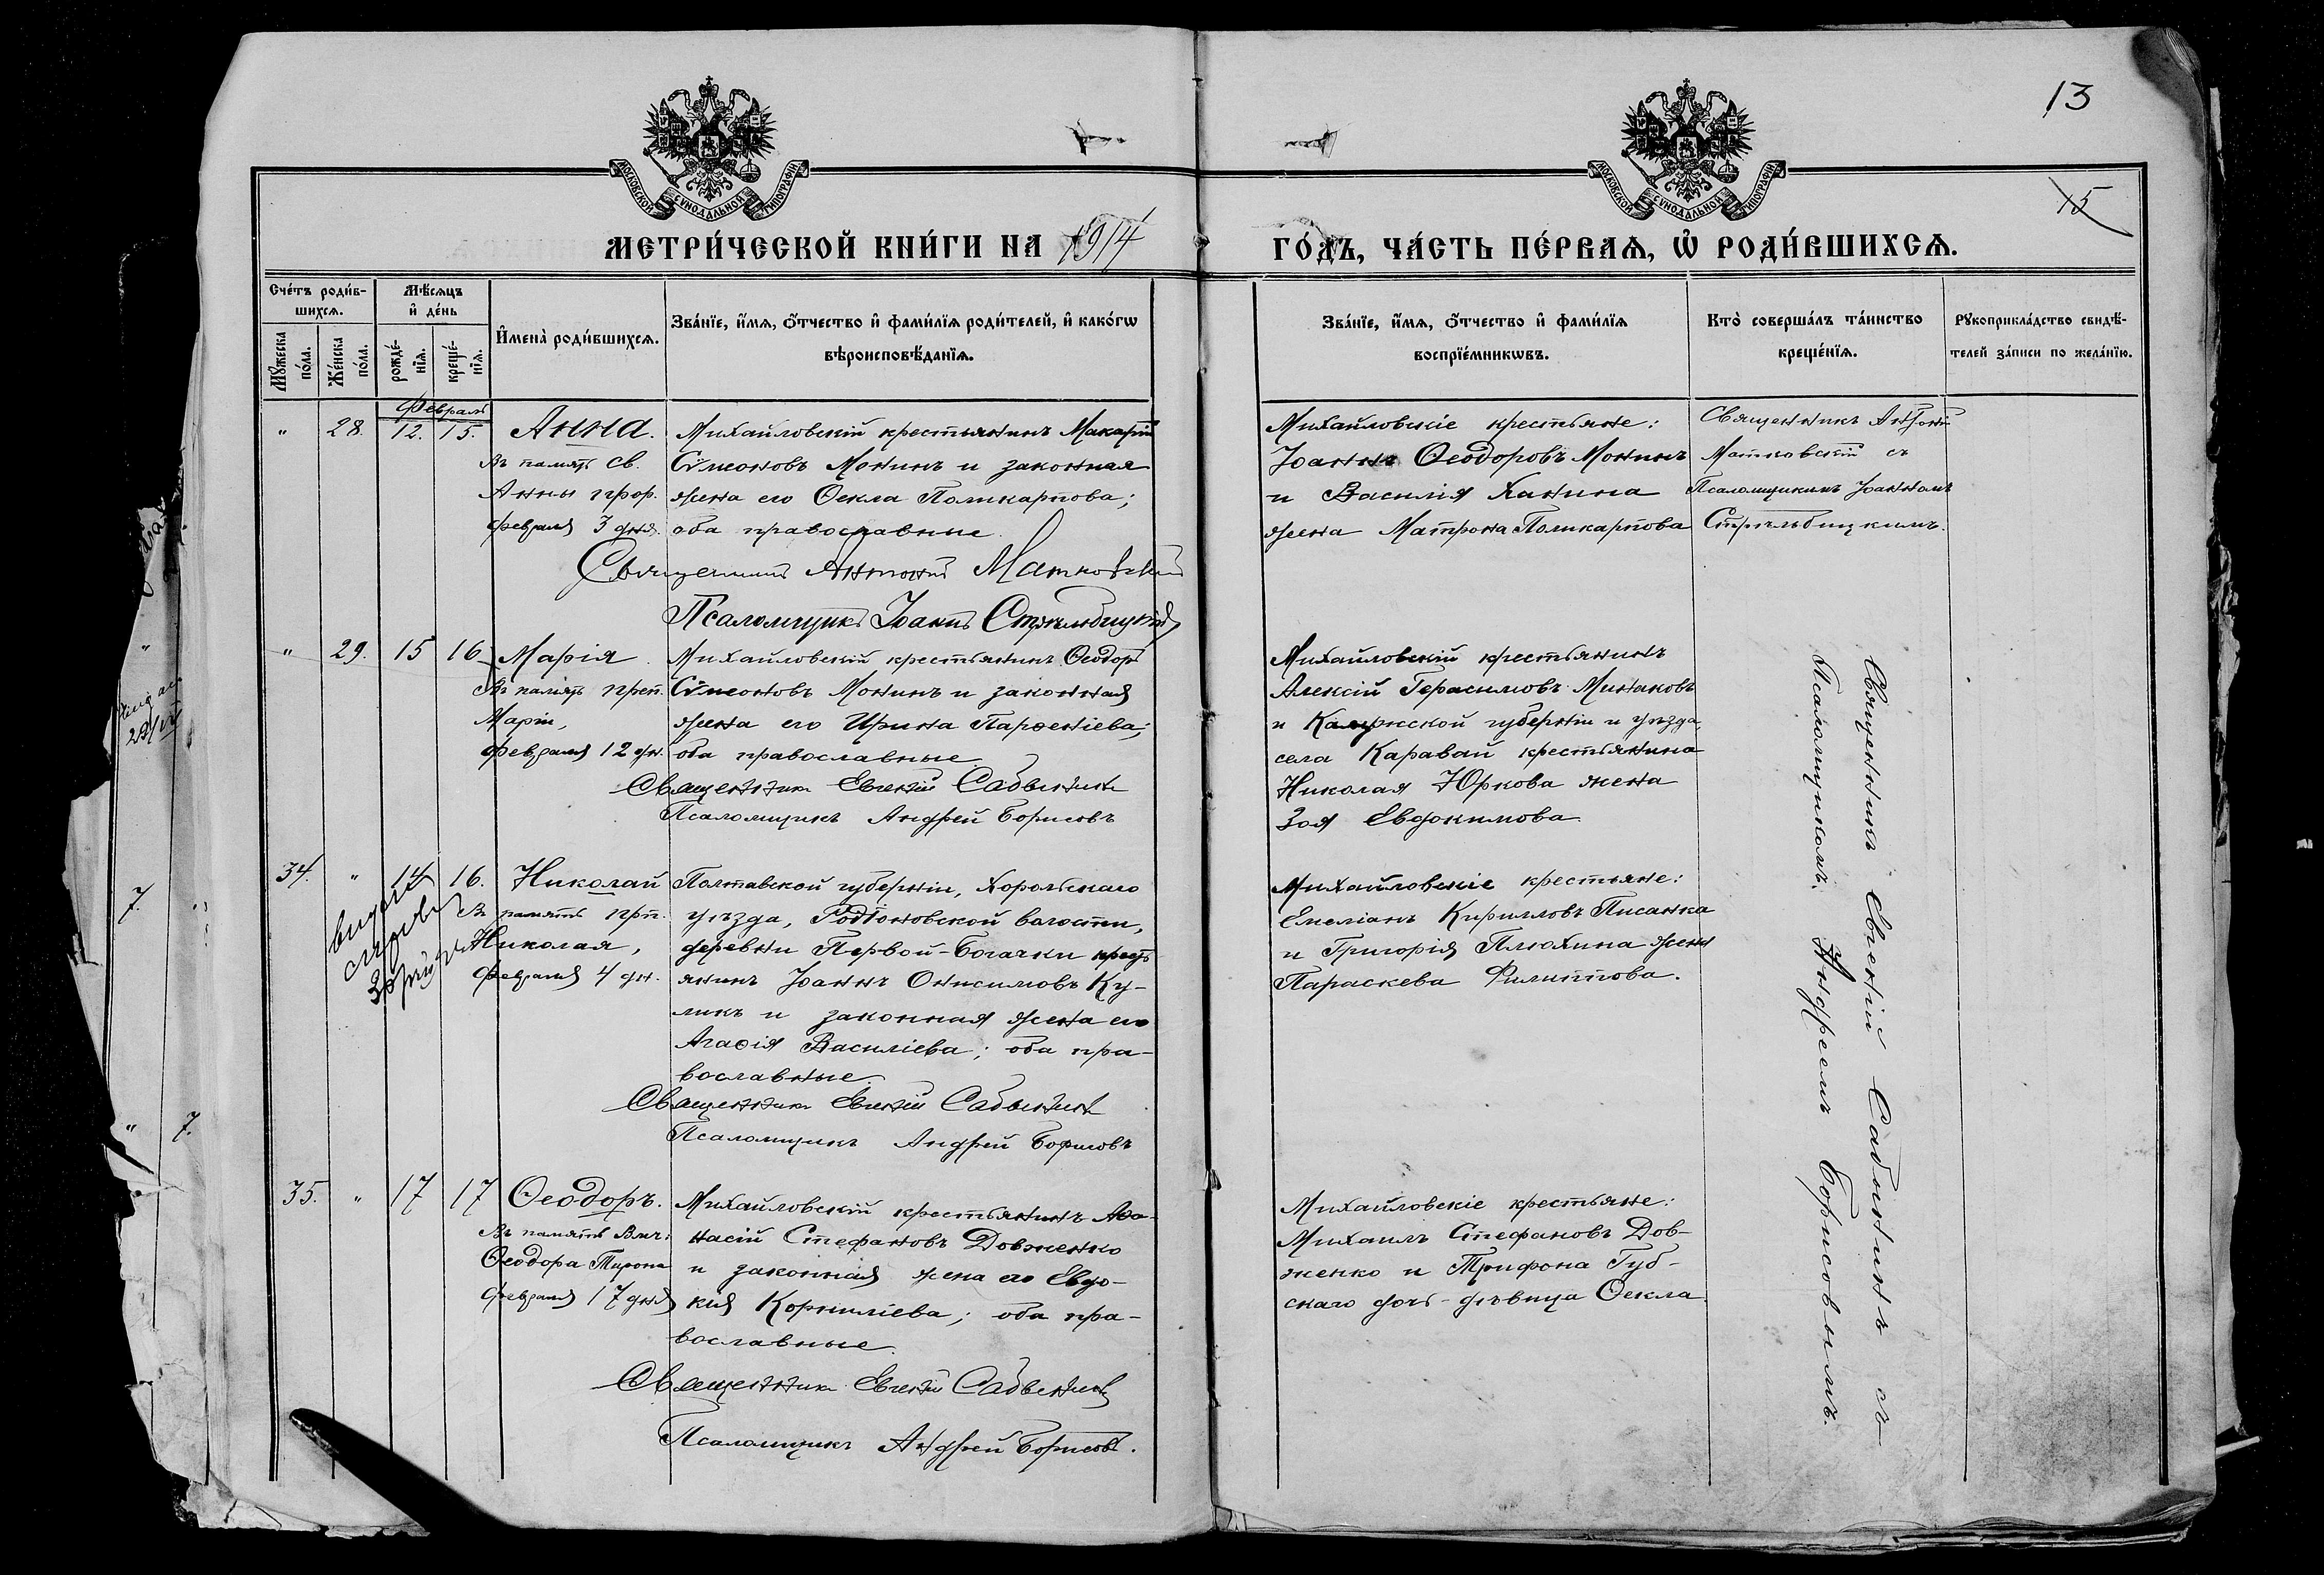 13
15
МОСКОВСКОЙ СѴНОДАЛЬНОЙ ТИПОГРАФІИ
МОСКОВСКОЙ СѴНОДАЛЬНОЙ ТИПОГРАФІИ
МЕТРИ́ЧЕСКОЙ КНИ́ГИ НА 1914 ГО́ДЪ, ЧА́СТЬ ПЕ́РВАѦ, Ѡ҆ РОДИ́ВШИХСѦ.
Сче́тъ роди́в-
шихсѧ.
Мꙋ́жеска по́ла.
Же́нска по́ла.
Мѣ́сѧцъ
и҆ де́нь
рожде́-
нїѧ.
креще́-
нїѧ.
И҆мена̀ роди́вшихсѧ.
Зва́нїе, и҆́мѧ, ѻ҆́тчество и҆ фами́лїѧ роди́телей, и҆ како́гѡ
вѣроисповѣ́данїѧ.
Зва́нїе, и҆́мѧ, ѻ҆́тчество и҆ фами́лїѧ
воспрїе́мникѡвъ.
Кто̀ соверша́лъ та́инство
креще́нїѧ.
Рꙋкоприкла́дство свидѣ́-
телей за́писи по жела́нїю.
Февраль
" 28. 12. 15. Анна.
Въ память св.
Анны прор.
Февраля 3 дня.
Михайловскій крестьянинъ Макарій
Сѵмеоновъ Монинъ и законная
жена его Ѳекла Поликарпова;
оба православные.
Священникъ Антоній Матковскій
Псаломщикъ Іоаннъ Стрѣльбицкій
Михайловскіе крестьяне:
Іоаннъ Ѳеодоровъ Монинъ
и Василія Ханина
жена Матрона Поликарпова
Священникъ Антоній
Матковскій съ
Псаломщикомъ Іоанномъ
Стрѣльбицкимъ.
" 29. 15 16 Марія.
Въ память преп.
Маріи,
Февраля 12 дн.
Михайловскій крестьянинъ Ѳеодоръ
Сѵмеоновъ Монинъ и законная
жена его Ирина Парѳеніева;
оба православные.
Священникъ Евгеній Сабынинъ
Псаломщикъ Андрей Борисовъ
Михайловскій крестьянинъ
Алексій Герасимовъ Минаковъ
и Калужской губерніи и уѣзда,
села Каравай крестьянина
Николая Юркова жена
Зоя Евдокимова.
34. " 14 16. Николай
Въ память прп.
Николая,
Февраля 4 дн.
Полтавской губерніи, Хорольскаго
уѣзда, Родіоновской волости,
деревни Первой-Богачки кресть
янинъ Іоаннъ Онисимовъ Ку-
ликъ и законная жена его
Агаѳія Василіева; оба пра-
вославные.
Священникъ Евгеній Сабынинъ
Псаломщикъ Андрей Борисовъ
Михайловскіе крестьяне:
Емеліанъ Кирилловъ Писанка
и Григорія Плюхина жена
Параскева Филиппова.
35. " 17 17 Ѳеодоръ.
Въ память Вмч.
Ѳеодора Тирона
Февраля 17 дня
Михайловскій крестьянинъ Аѳа-
насій Стефановъ Довженко
и законная жена его Евдо-
кія Корниліева; оба пра-
вославные.
Священникъ Евгеній Сабынинъ
Псаломщикъ Андрей Борисовъ.
Михайловскіе крестьяне:
Михаилъ Стефановъ Дов-
женко и Трифона Губ-
скаго дочь-дѣвица Ѳекла.
Священникъ Евгеній Сабынинъ съ
Псаломщикомъ Андреемъ Борисовымъ.
7.
" 7.